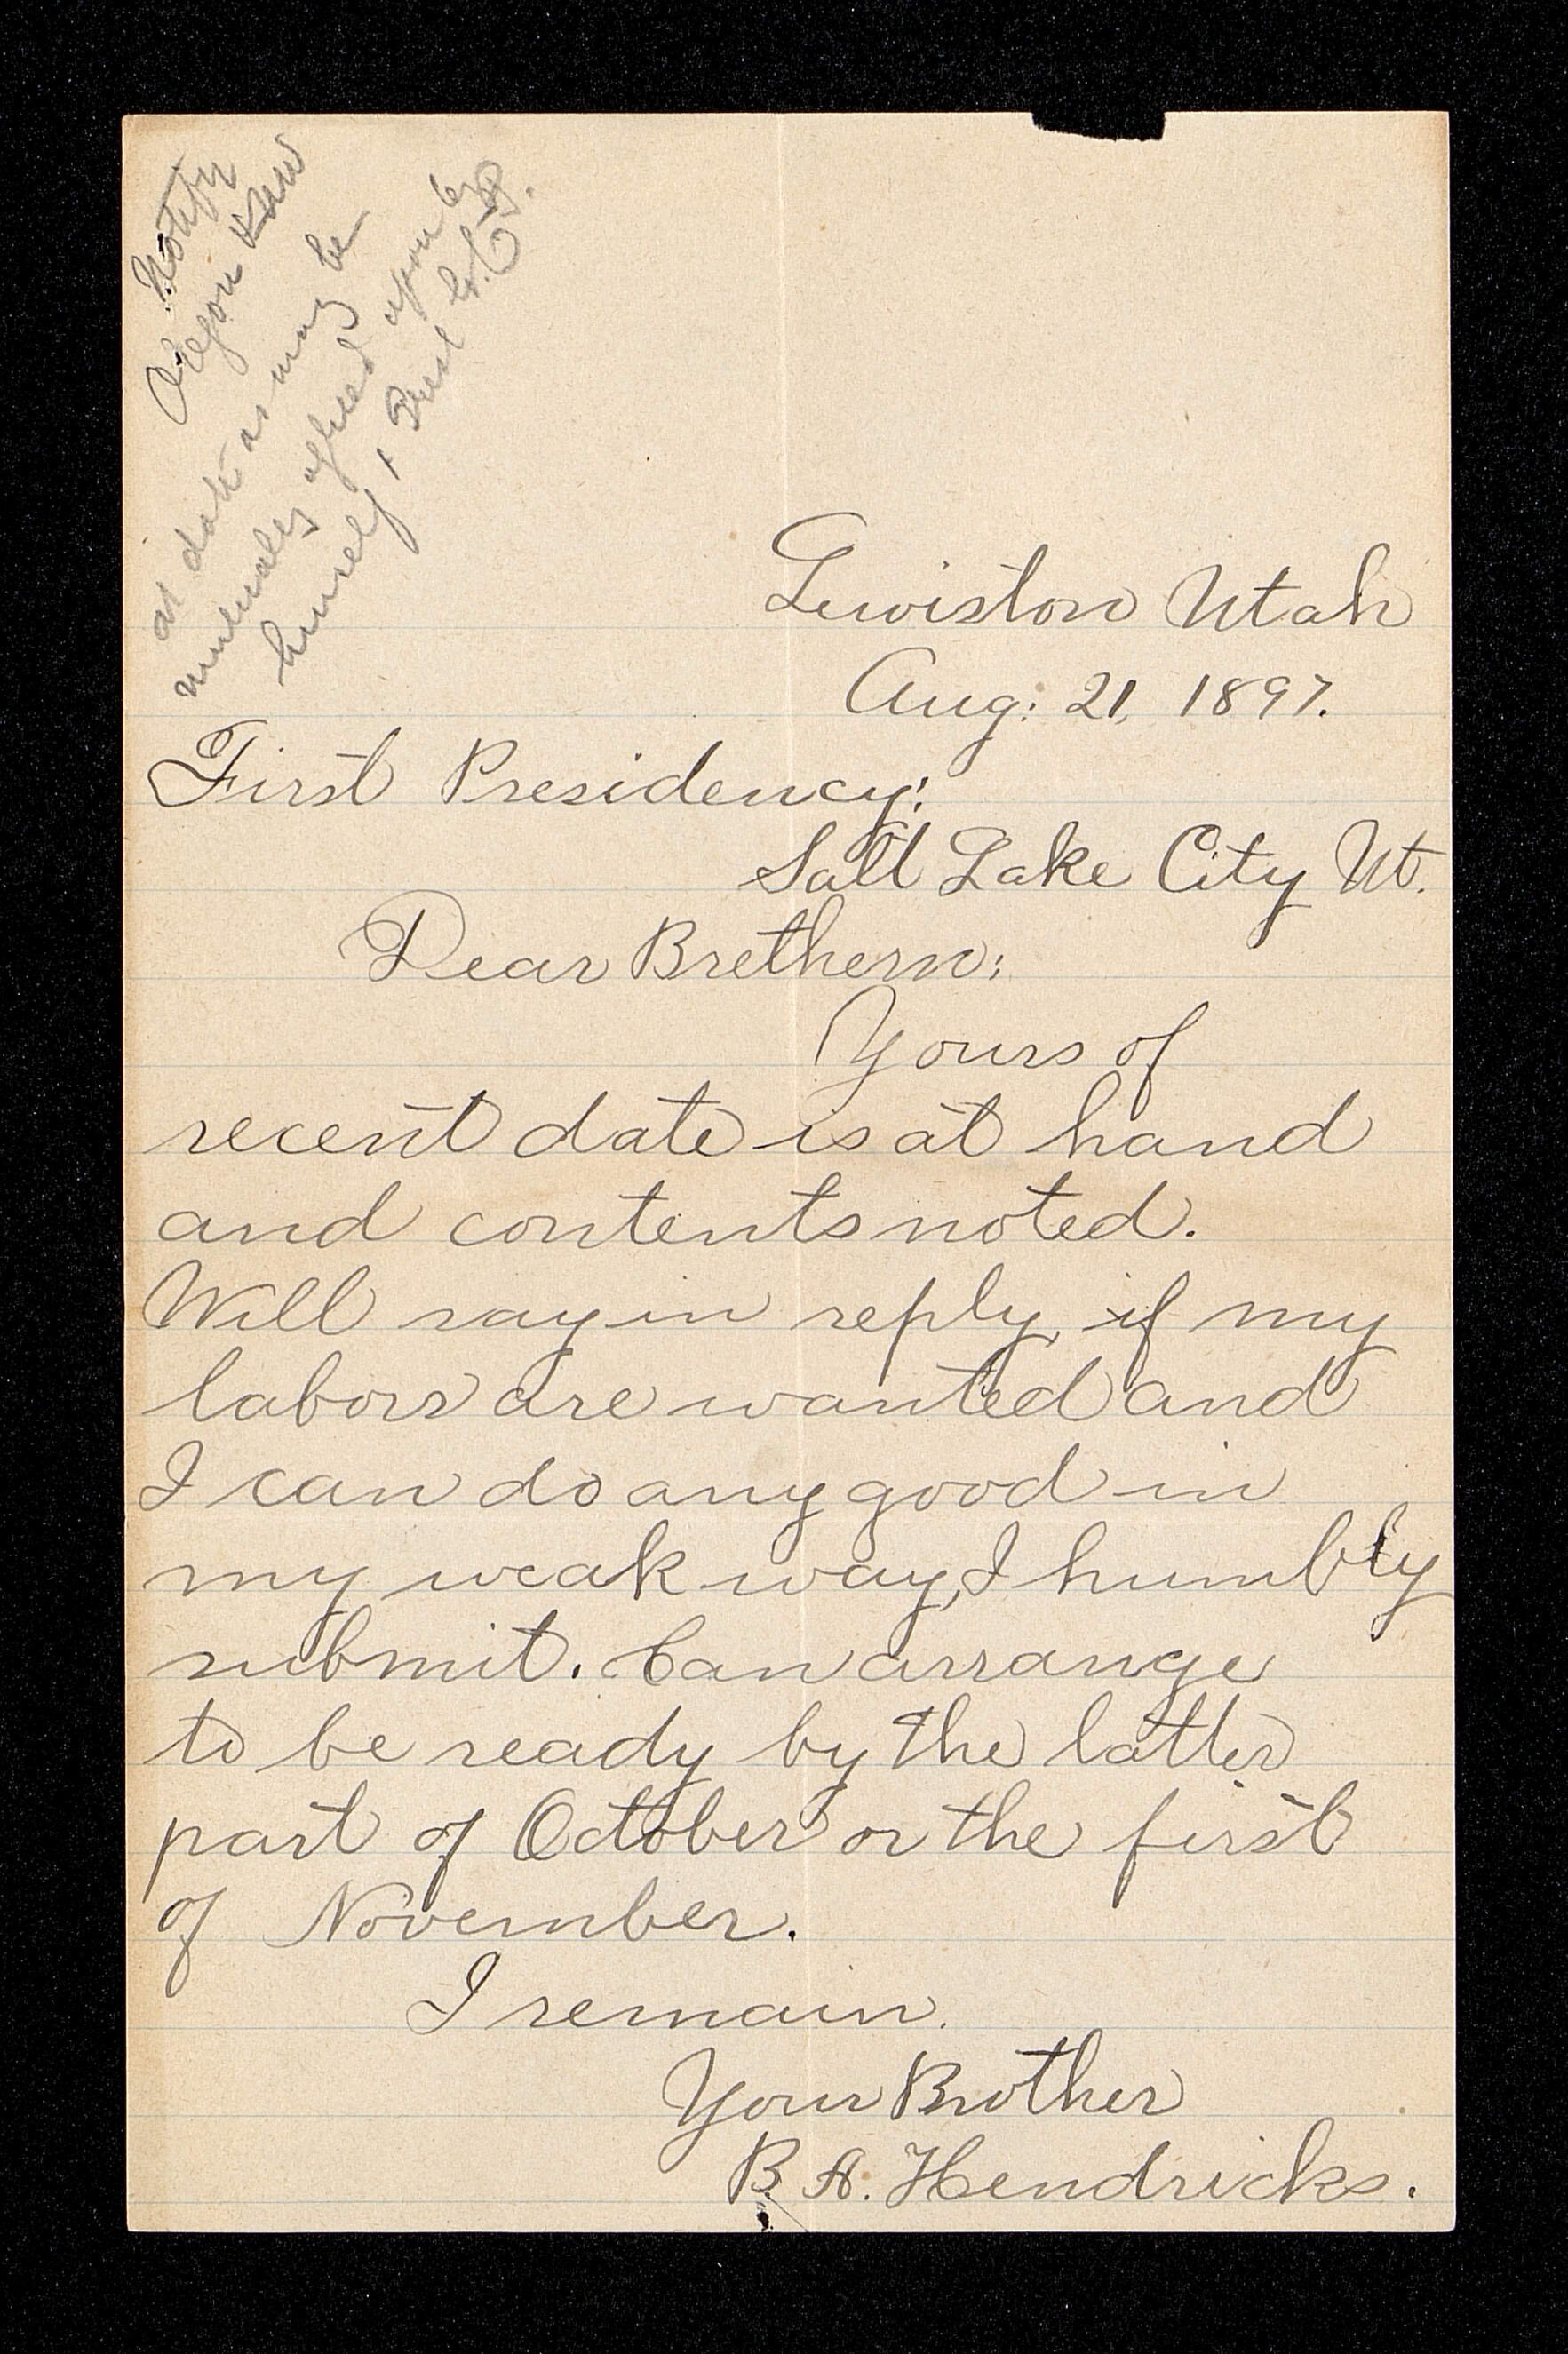 Notify
Oregon
at date as may be
mutually agreed upon by
himself & Prest
Lewiston Utah
Aug: 21, 1897.
First Presidency:
Salt Lake City Ut.
Dear Brethern:
Yours of
recent date is at hand
and contents noted.
Will say in reply, if my
labors are wanted and
I can do any good in
my weak way, I humbly
submit. Can arrange
to be ready by the latter
part of October or the first
of November.
I remain.
Your Brother
B. A. Hendricks.